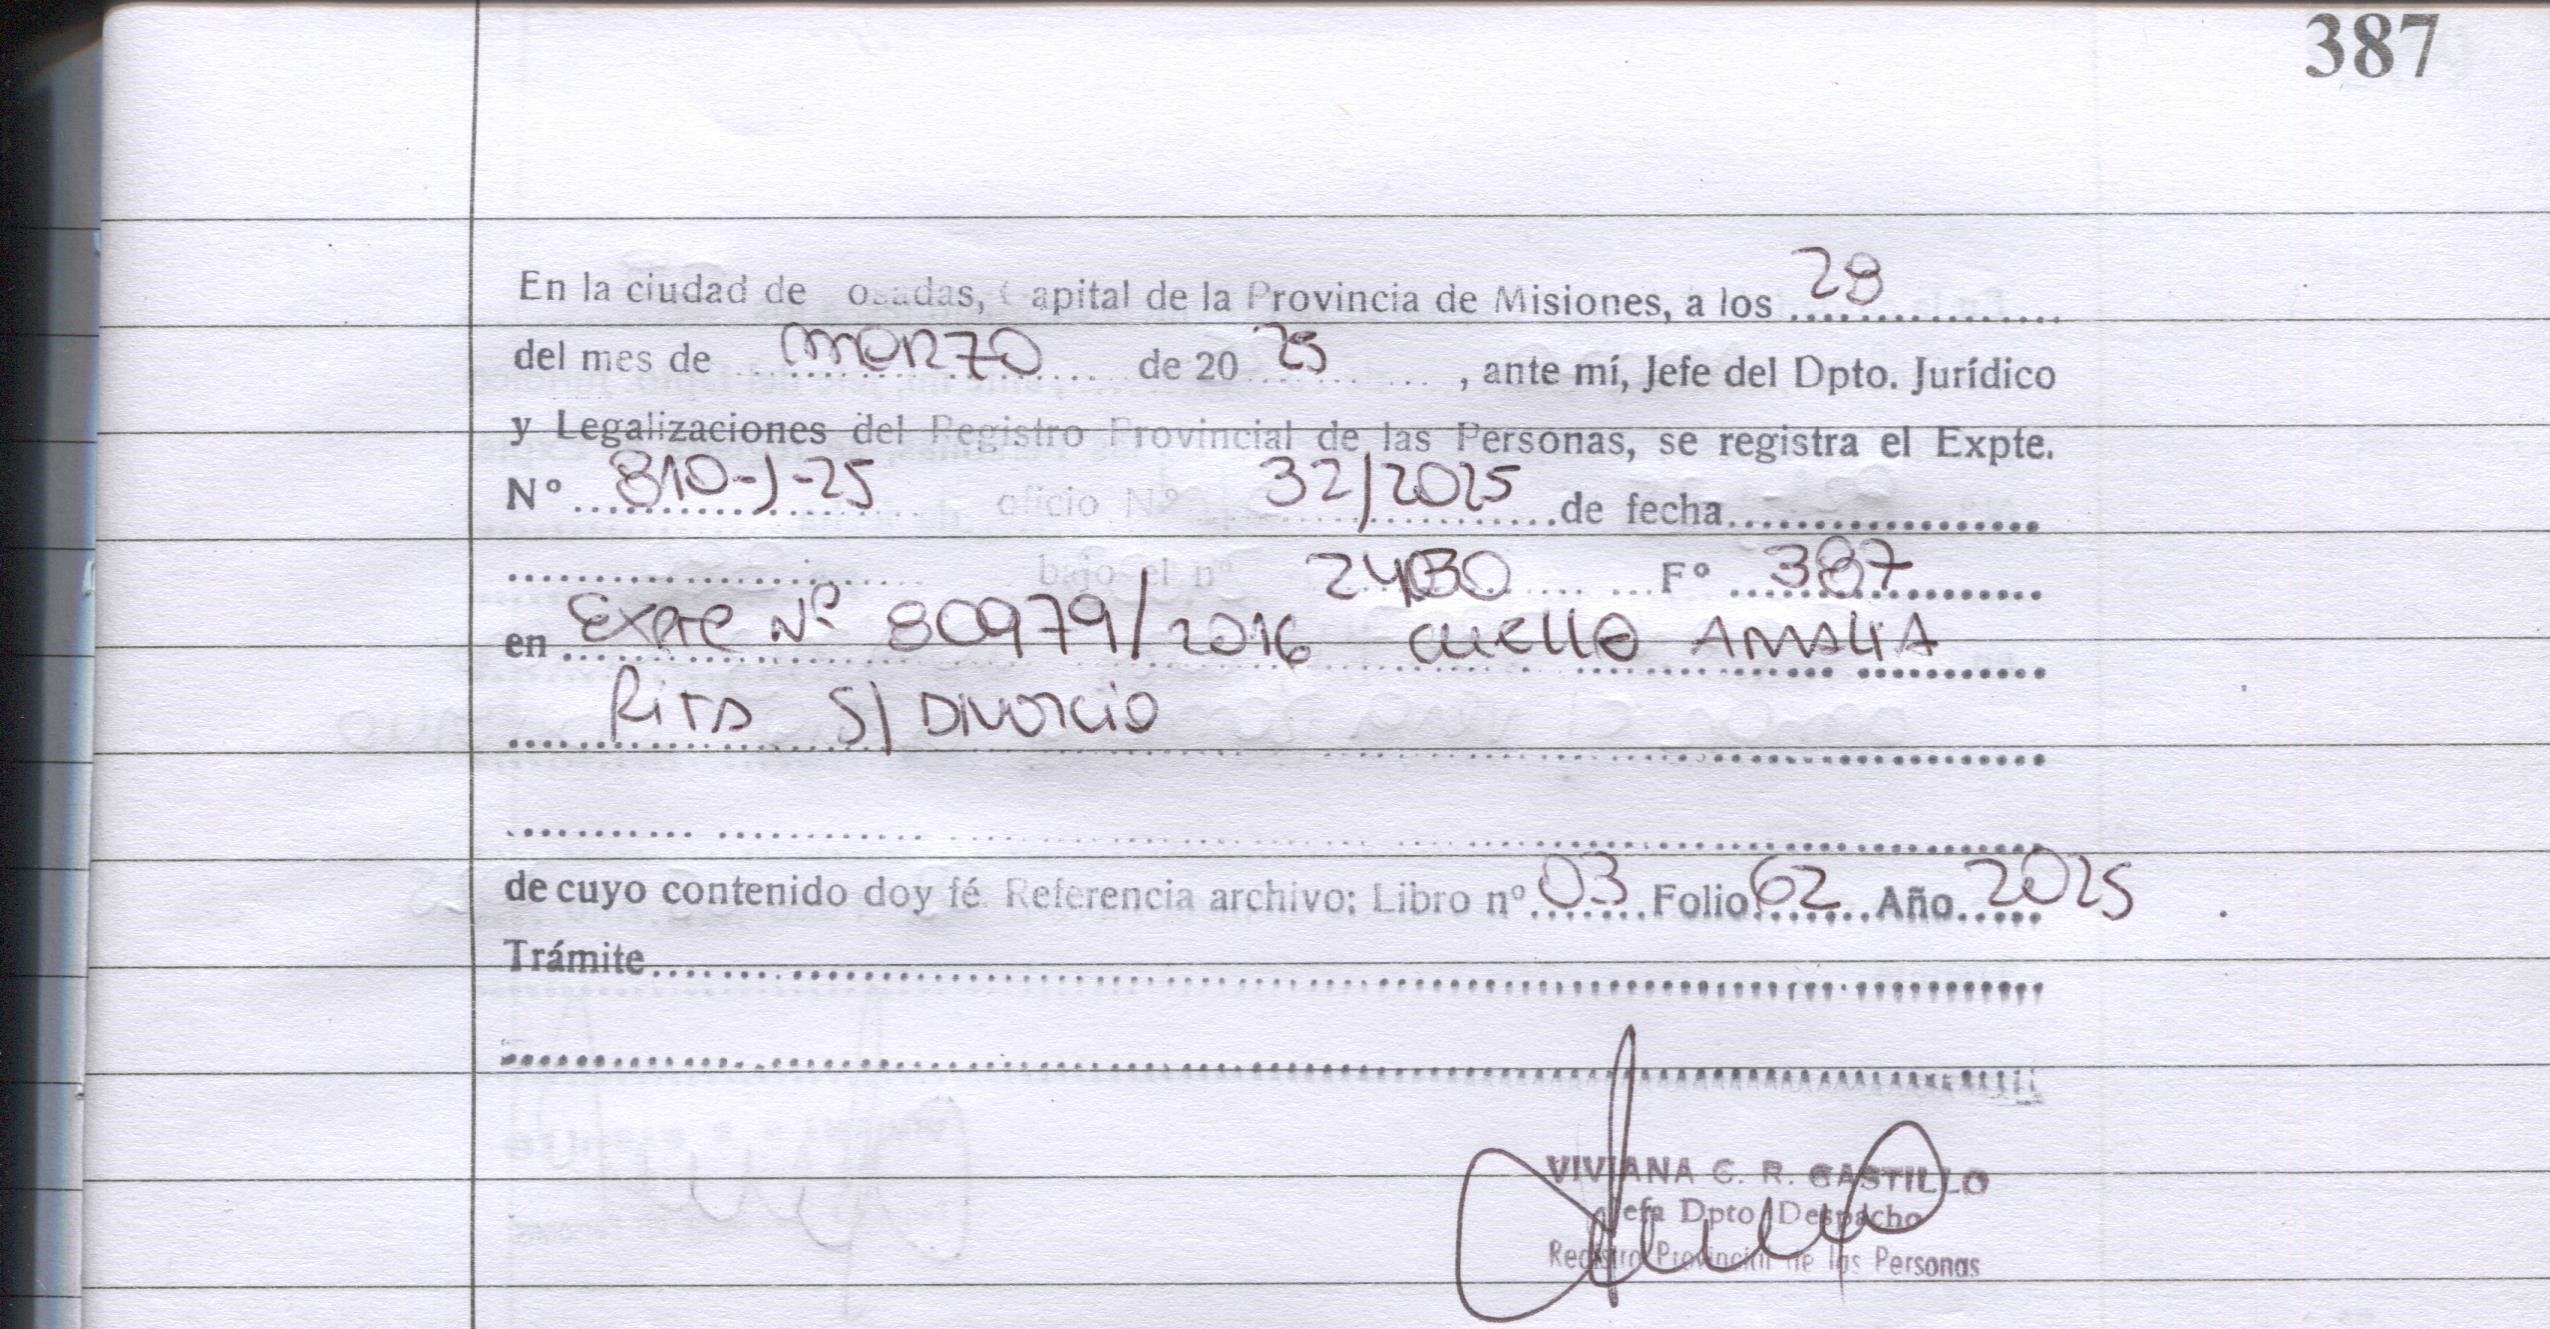 387
En la ciudad de osadas, Capital de la Provincia de Misiones, a los 28
del mes de MARZO de 20 25 , ante mí, Jefe del Dpto. Jurídico
y Legalizaciones del Registro Provincial de las Personas, se registra el Expte.
Nº 810-J-25 oficio Nº 32/2025 de fecha
bajo el nº F° 387
en Expte Nº 80979/2016 CUELLO AMALIA
Rita S/ DIVORCIO
de cuyo contenido doy fé. Referencia archivo; Libro nº 03 Folio 62 Año 2025
Trámite
VIVIANA C. R. CASTILLO
Jefa Dpto Despacho
Registro Provincial de las Personas